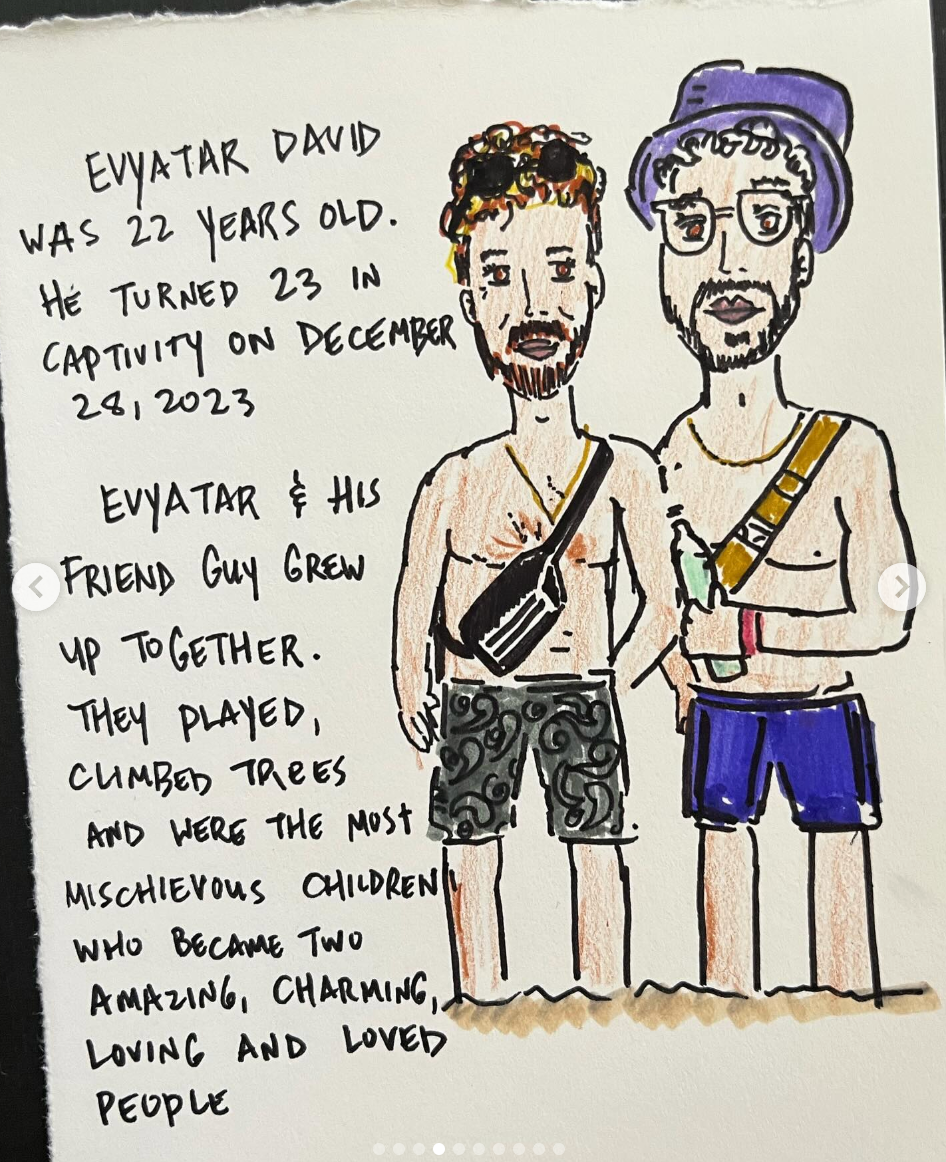 EVYATAR DAVID
WAS 22 YEARS OLD.
HE TURNED 23 IN
CAPTIVITY ON DECEMBER
28, 2023
EVYATAR & HIS
FRIEND GUY GREW
UP TOGETHER.
THEY PLAYED,
CLIMBED TREES
AND WERE THE MOST
MISCHIEVOUS CHILDREN
WHO BECAME TWO
AMAZING, CHARMING,
LOVING AND LOVED
PEOPLE